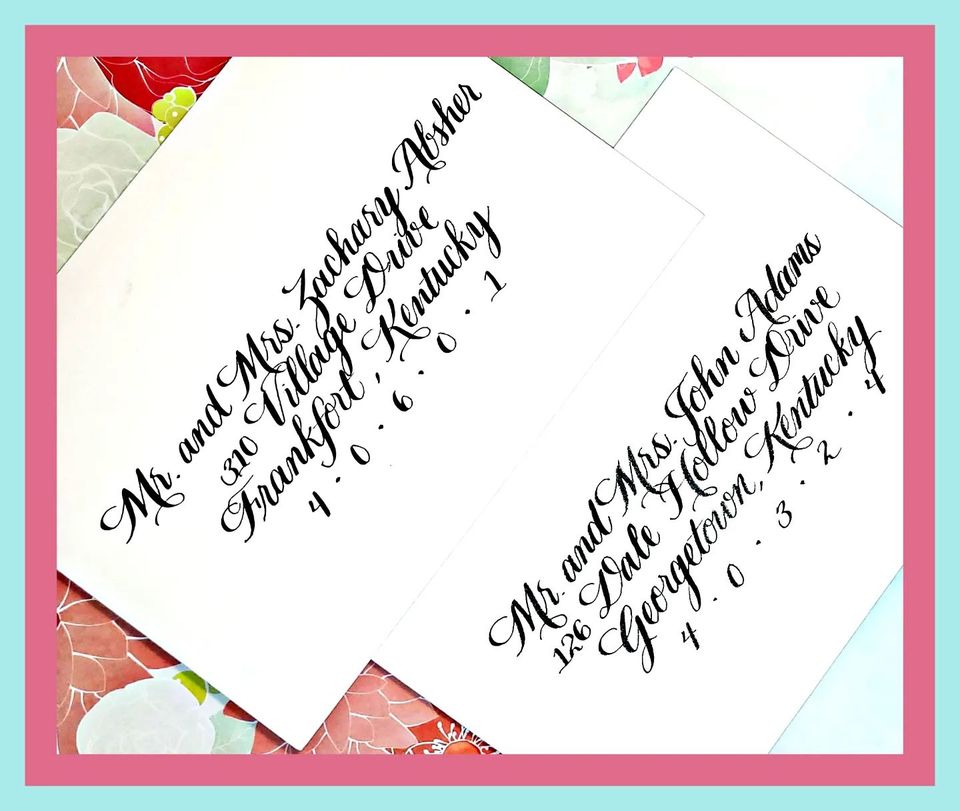 Mr. and Mrs. Zachary Absher
310 Village Drive
Frankfort, Kentucky
4 · 0 · 6 · 0 · 1
Mr. and Mrs. John Adams
126 Dale Hollow Drive
Georgetown, Kentucky
4 · 0 · 3 · 2 · 4